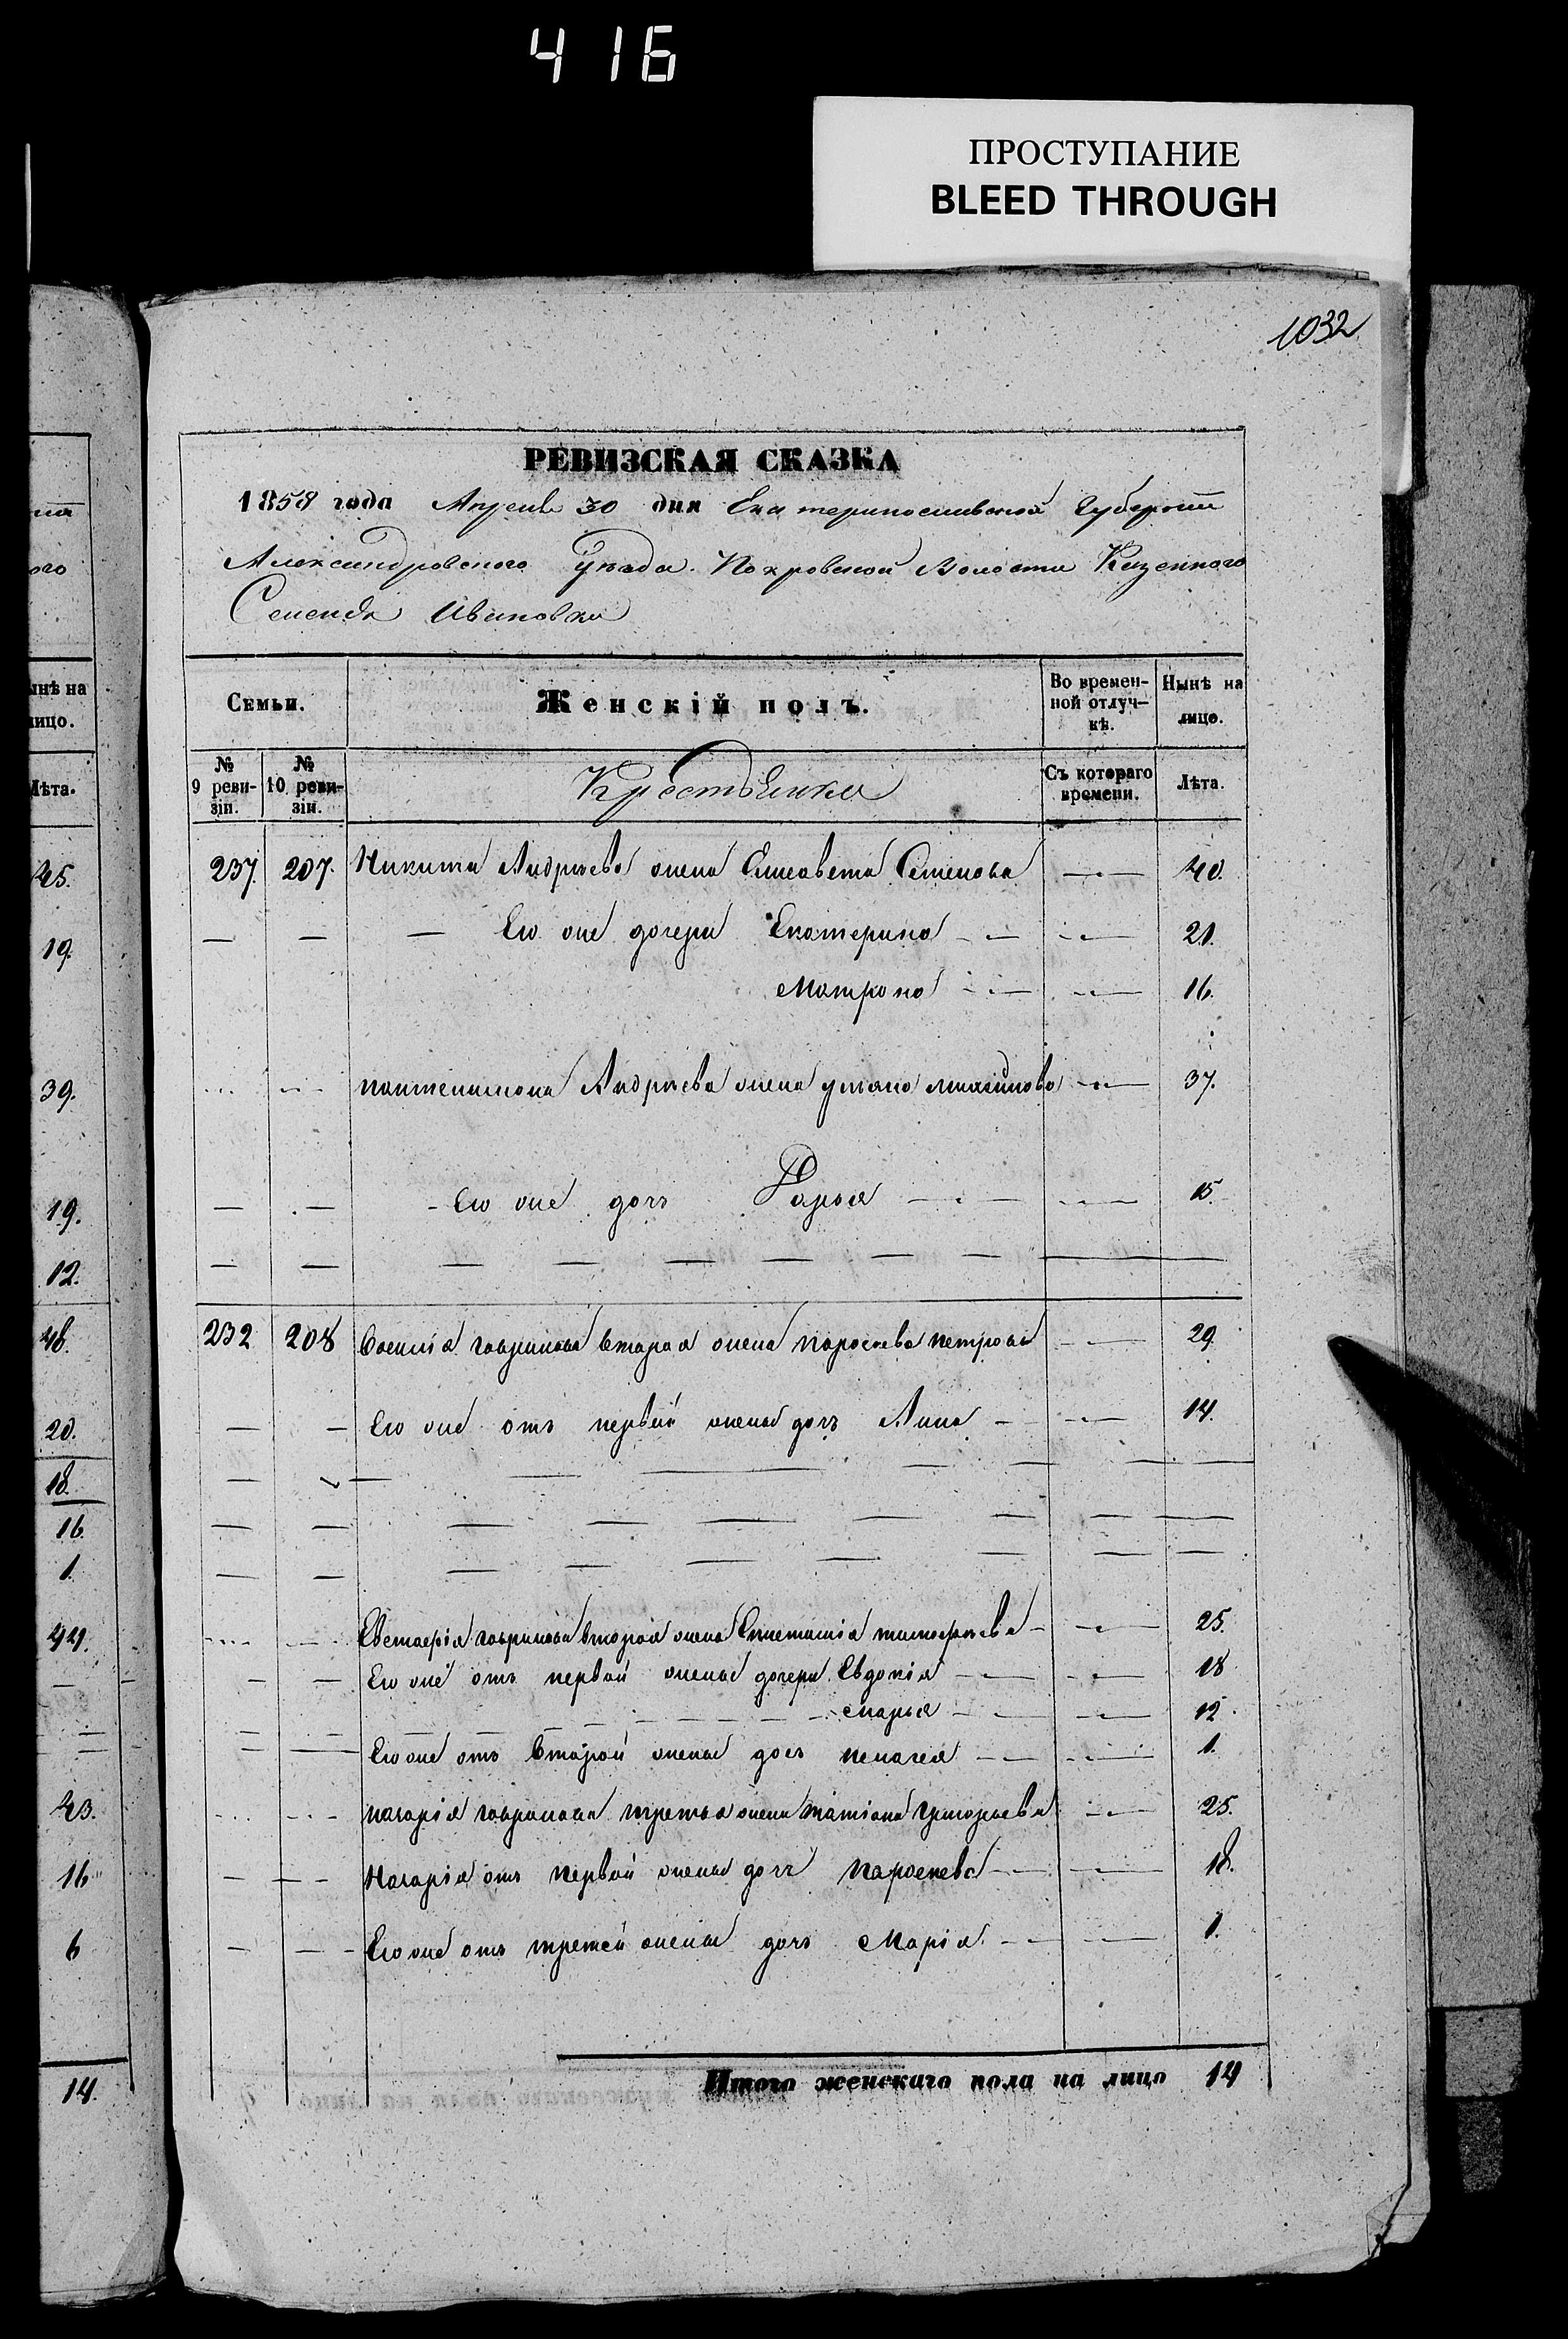 416
ПРОСТУПАНИЕ
BLEED THROUGH
1032
РЕВИЗСКАЯ СКАЗКА
1858 года Апреля 30 дня Екатеринославской Губернии
Александровского Уезда Покровской Волости Казенного
Селенія Ивановки
Семьи.
Женскій полъ.
Во времен-
ной отлуч-
кѣ.
Нынѣ на
лицо.
№
9 реви-
зіи.
№
10 реви-
зіи.
Крестьянка
Съ котораго
времени.
Лѣта.
237. 207. Никита Андреева жена Елисавета Семенова 40.
Его же дочери Екатерина 21.
Матрона 16.
пантелимона Андреева жена 37.
Его же дочь Дарья 15.
232 208 Василія гаврилова вторая жена параскева петрова 29.
Его же отъ первой жены дочь Анна 14.
Евстафія гаврилова вторая жена тимофеева 25.
Его же отъ первой жены дочери Евдокія 18
марья 12.
Его же отъ второй жены дочь пелагея 1.
назарія гаврилова третья жена татіана григорьева 25.
Назарія отъ первой жены дочь параскева 18.
Его же отъ третей жены дочь Марія 1.
Итого женскаго пола на лицо 14
ынѣ на
лицо.
Лѣта.
45.
19.
39.
19.
12.
48.
20.
18.
16.
1.
44.
43.
16
6
14.